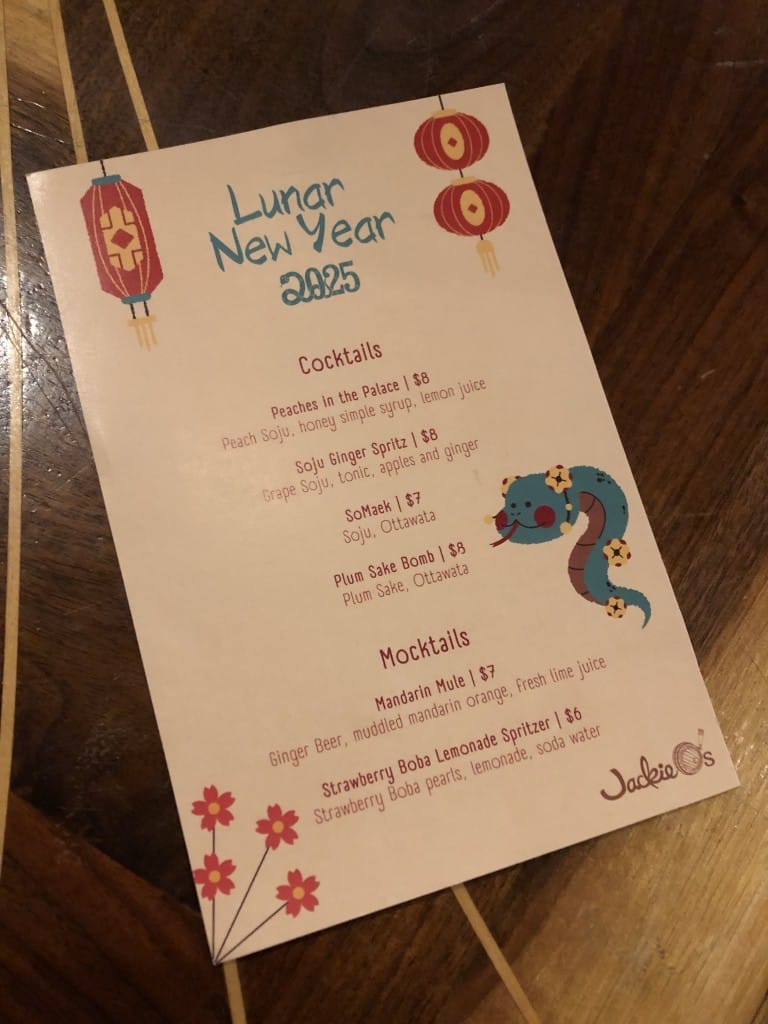 Lunar
New Year
2025
Cocktails
Peaches In the Palace | $8
Peach Soju, honey simple syrup, lemon juice
Soju Ginger Spritz | $8
Grape Soju, tonic, apples and ginger
SoMaek | $7
Soju, Ottawata
Plum Sake Bomb | $8
Plum Sake, Ottawata
Mocktails
Mandarin Mule | $7
Ginger Beer, muddled mandarin orange, fresh lime juice
Strawberry Boba Lemonade Spritzer | $6
Strawberry Boba pearls, lemonade, soda water
Jackie O's